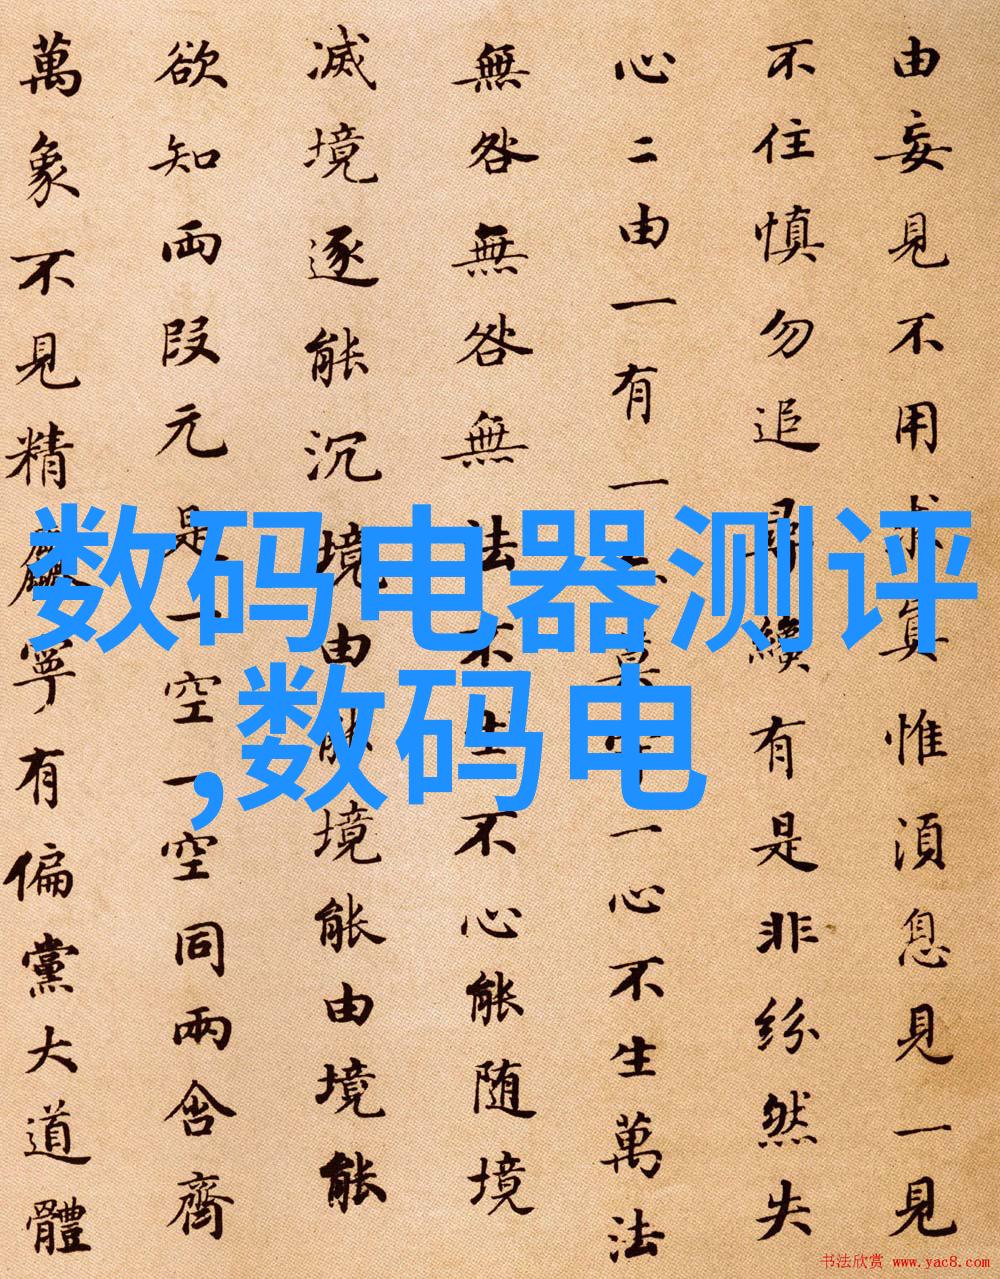 由妄見不用求真惟湏息見一見
不住慎勿追尋纔有是非紛然失
心二由一有一莫守一心不生萬法
無咎無咎無法不生不心能随境
滅境逐能沉境由能境能由境能
欲知兩段元是一空一空同兩含齊
萬象不見精麁寧有偏黨大道體
数码电器测评
,数码电
书法欣赏 www.yac8.com